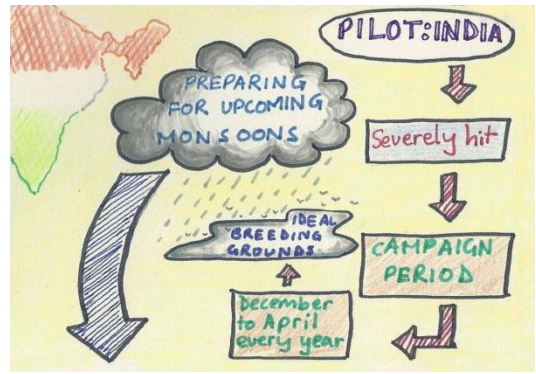 PILOT:INDIA
PREPARING
FOR UPCOMING
MONSOONS
Severely hit
IDEAL
BREEDING
GROUNDS
CAMPAIGN
PERIOD
December
to April
every year